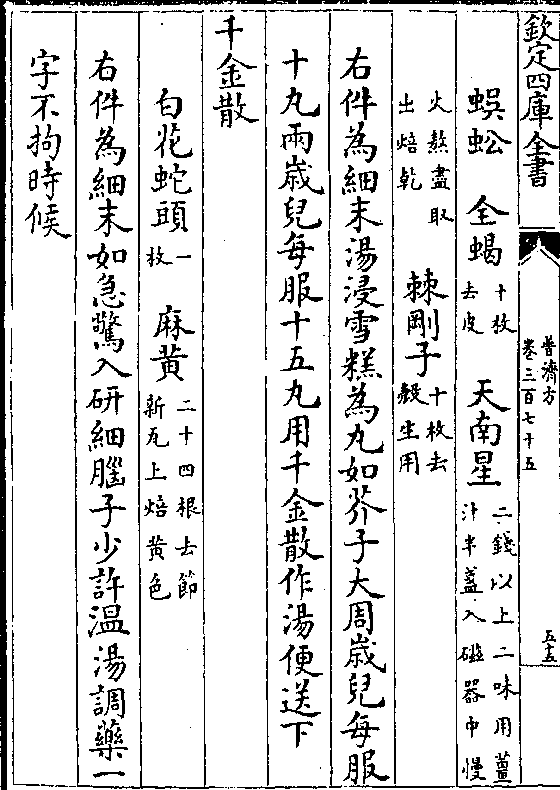 欽定四庫全書
普濟方
卷三百七十五
五十五
蜈蚣 全蝎 十枚去皮 天南星 二錢以上二味用薑汁半盞入磁器中慢
火熬盡取出焙乾 棘剛子 十枚去殼生用
右件為細末湯浸雪糕為丸如芥子大周歲兒每服
十丸兩歲兒每服十五丸用千金散作湯便送下
千金散
白花蛇頭 一枚 麻黄 二十四根去節新瓦上焙黄色
右件為細末如急驚入研細腦子少許温湯調藥一
字不拘時候